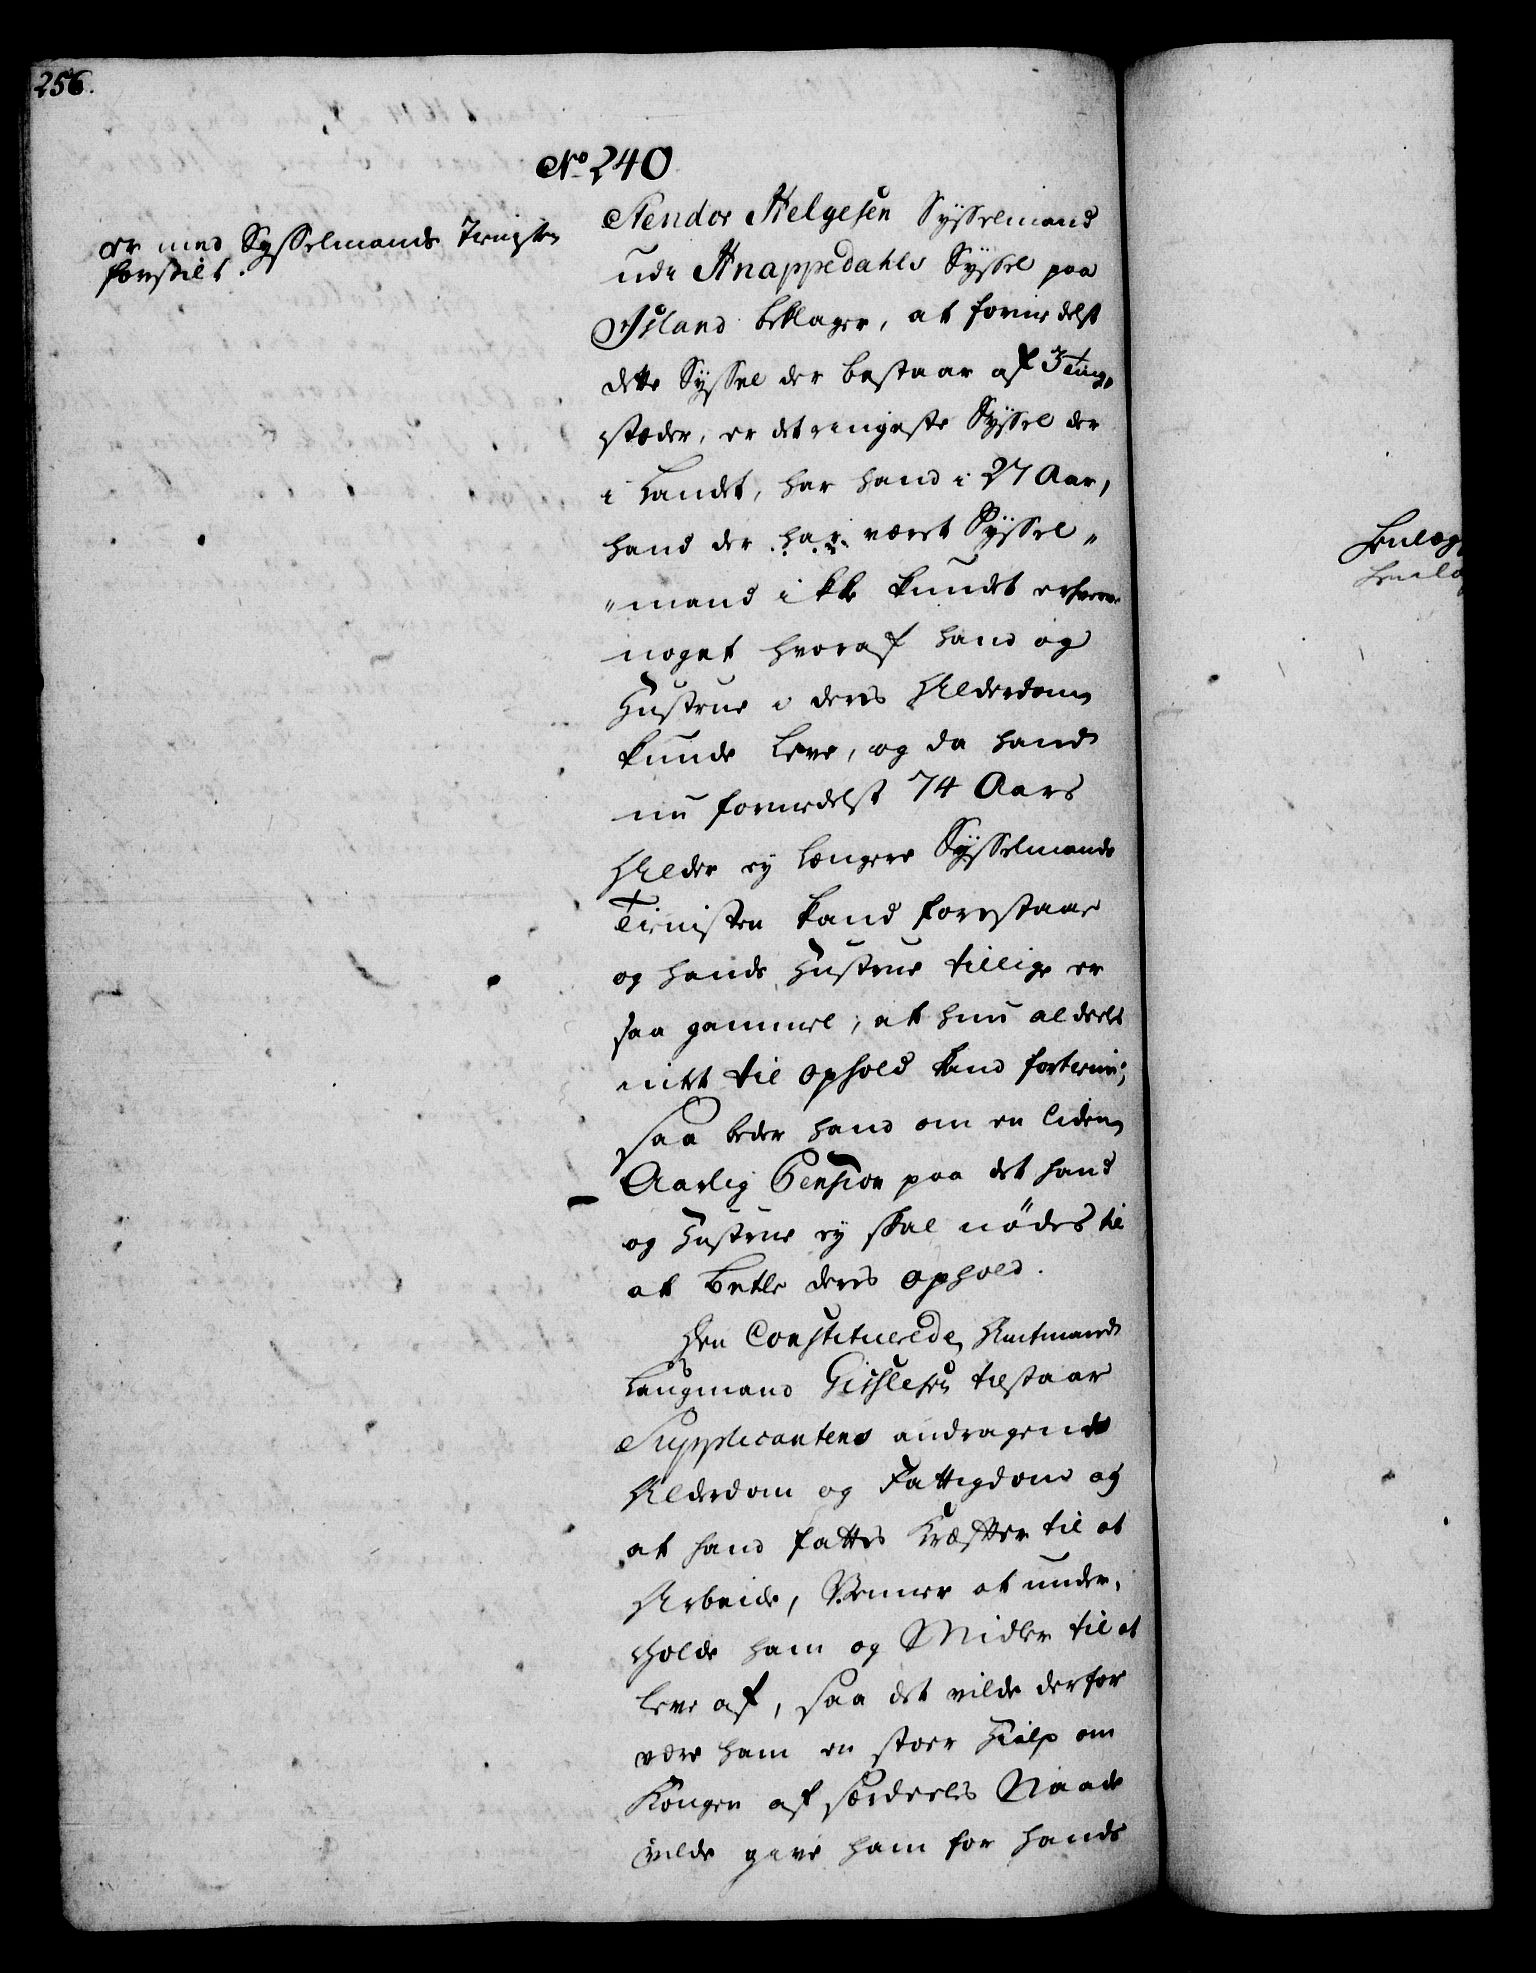 256.
No 240
er med Sysselmands Tienisten
forskilt.
Stendor Helgesen Sysselmand
udi Hnappedahls Syssel paa
Island beklager, at formedelst
dette Syssel der bestaar af 3 Ting-
stæder, er det ringeste Syssel der
i Landet, har hand i 27 Aar,
hand der har været Syssel„
„mand ikke kundet erhverve
noget hvoraf hand og
Hustrue i deres Alderdom
kunde leve, og da hand
nu formedelst 74 Aars
Alder ey længere Sysselmands
Tienisten kand forestaae
og hands Hustrue tillige er
saa gammel, at hun aldeeles
intet til ophold kand fortiene;
Saa beder hand om en liden
Aarlig Pension paa det hand
og Hustrue ey skal nødes til
at betle deres ophold.
Den Constituerede Amtmand
Laugmand Gislesen tilstaar
Supplicantens andragende
Alderdom og Fattigdom og
at hand fattes Kræfter til at
Arbeide, Venner at under„
holde ham og Midler til at
leve af, saa det vilde derfor
være ham en stoer Hielp om
Kongen af særdeeles Naade
vilde give ham for hands